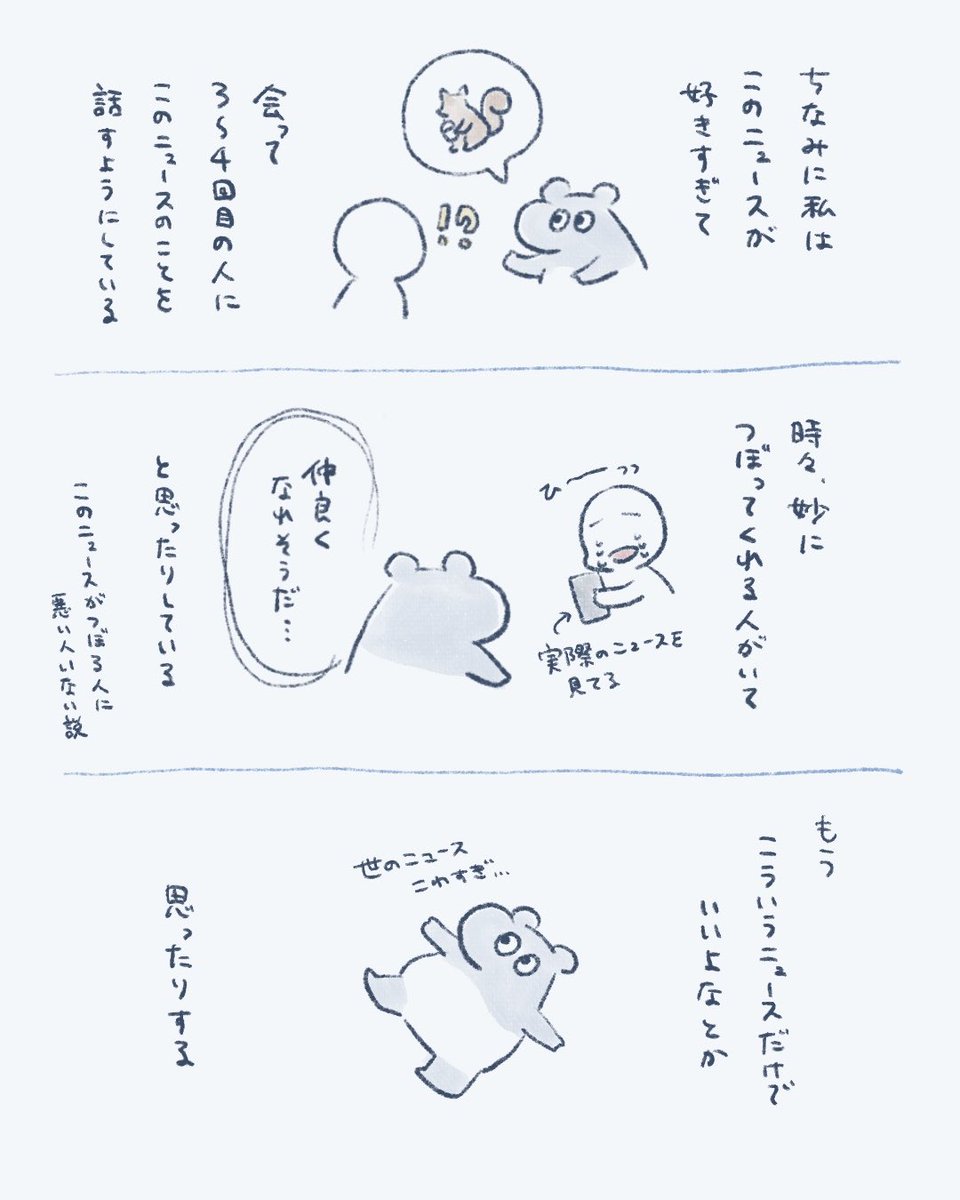 ちなみに私は
このニュースが
好きすぎて
!?
会って
3〜4回目の人に
このニュースのことを
話すようにしている
時々、妙に
つぼってくれる人がいて
ひーっっ
実際のニュースを
見てる
仲良く
なれそうだ…
と思ったりしている
このニュースがつぼる人に
悪い人いない説
もう
こういうニュースだけで
いいよなとか
世のニュース
こわすぎ…
思ったりする